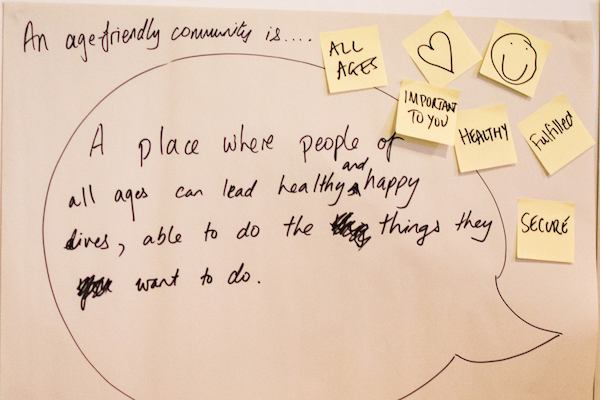 An age-friendly community is....
ALL
AGES
IMPORTANT
TO YOU
HEALTHY
Fulfilled
SECURE
A place where people of
all ages can lead healthy and happy
lives, able to do the things they
want to do.